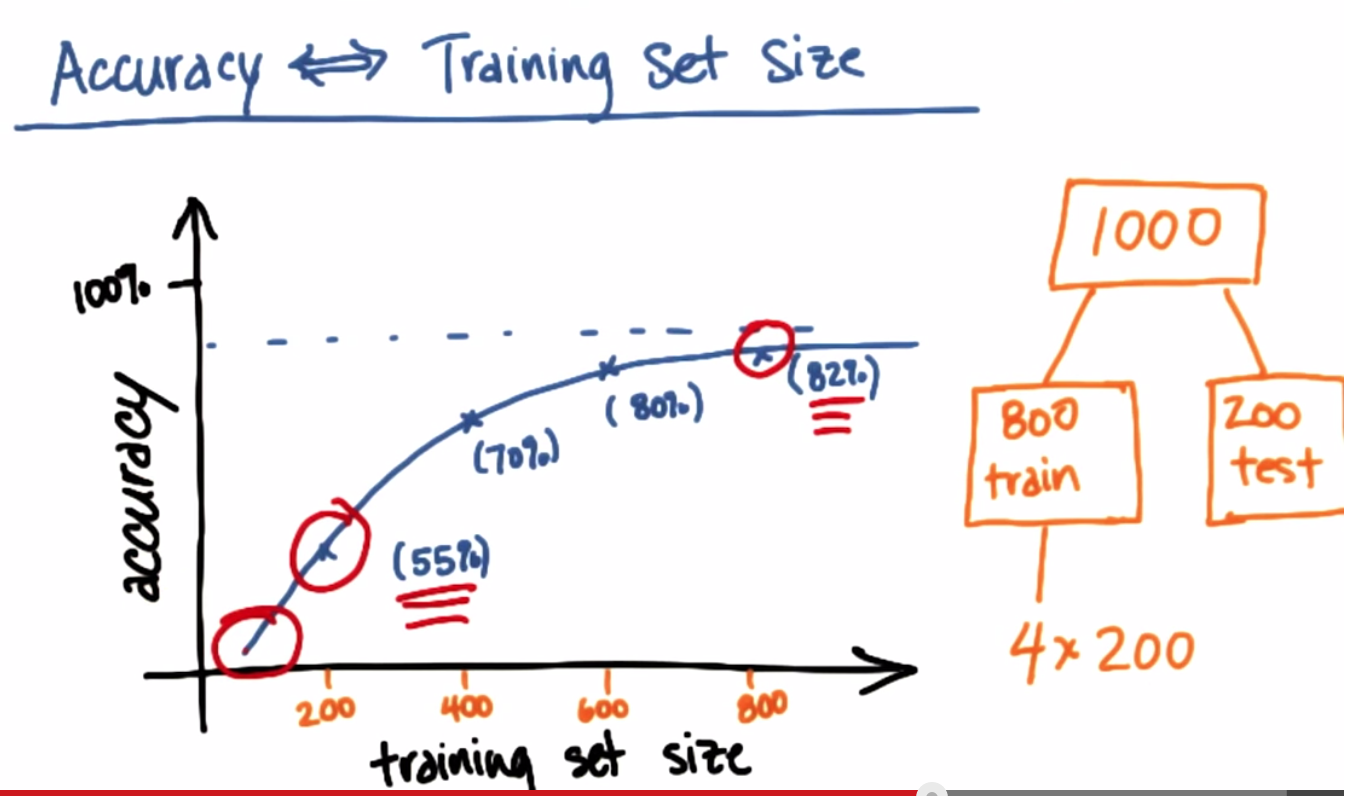 Accuracy ⟺ Training Set Size
100%
accuracy
(55%)
(70%)
(80%)
(82%)
200 400 600 800
training set size
1000
800
train
200
test
4 x 200